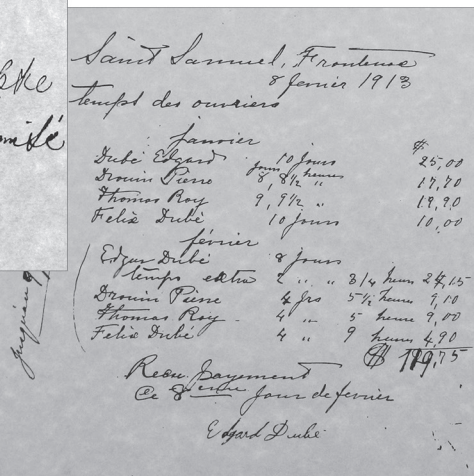 Saint Samuel, Frontenac
8 fevrier 1913
tempt des ouvriers
janvier
$
Dubé Edgard 10 Jours 25,00
Drouin Pierre Jours 8, 8 1/2 heures 17,70
Thomas Roy 9, 9 1/2 " 19,90
Felix Dubé 10 Jours 10,00
février
Edgar Dubé 8 Jours
temps extra 2 " " 3/4 heurs 24,15
Drouin Pierre 4 Jrs 5 1/2 heures 9,10
Thomas Roy 4 " 5 heure 9,00
Felix Dubé 4 " 9 heures 4,90
$ 119,75
Recu payement
Ce 8 eme Jour de fevrier
Edgard Dubé